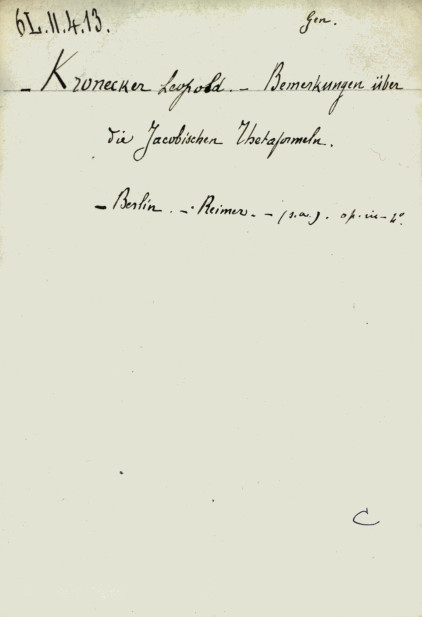 6L.II.4.13.
Gen.
- Kronecker Leopold. - Bemerkungen über
die Jacobischen Thetaformeln.
- Berlin. - Reimer. - (s.a.). op. in - 4°.
C